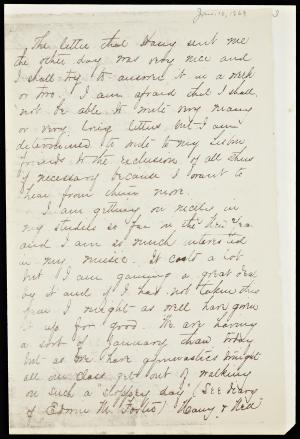 Jan. 18, 1869
3
The letter that Harry sent me
the other day was very nice and
I shall try to answer it in a week
or two. I am afraid that I shall
not be able to write very many
or very long letters but I am
determined to write to my Lisbon
friends to the exclusion of all others
if necessary because I want to
hear from them more.
I am getting on nicely in
my studies so far in the
and I am so much interested
in my music. It costs a lot
but I am gaining a great deal
by it and if I had not taken this
year I might as well have given
it up for good. We are having
a sort of January thaw today
but as we have gymnastics tonight
all our class get out of walking
on such a "sloppery day" (See diary
of Edwin M. Foster) "Harry & Fred"